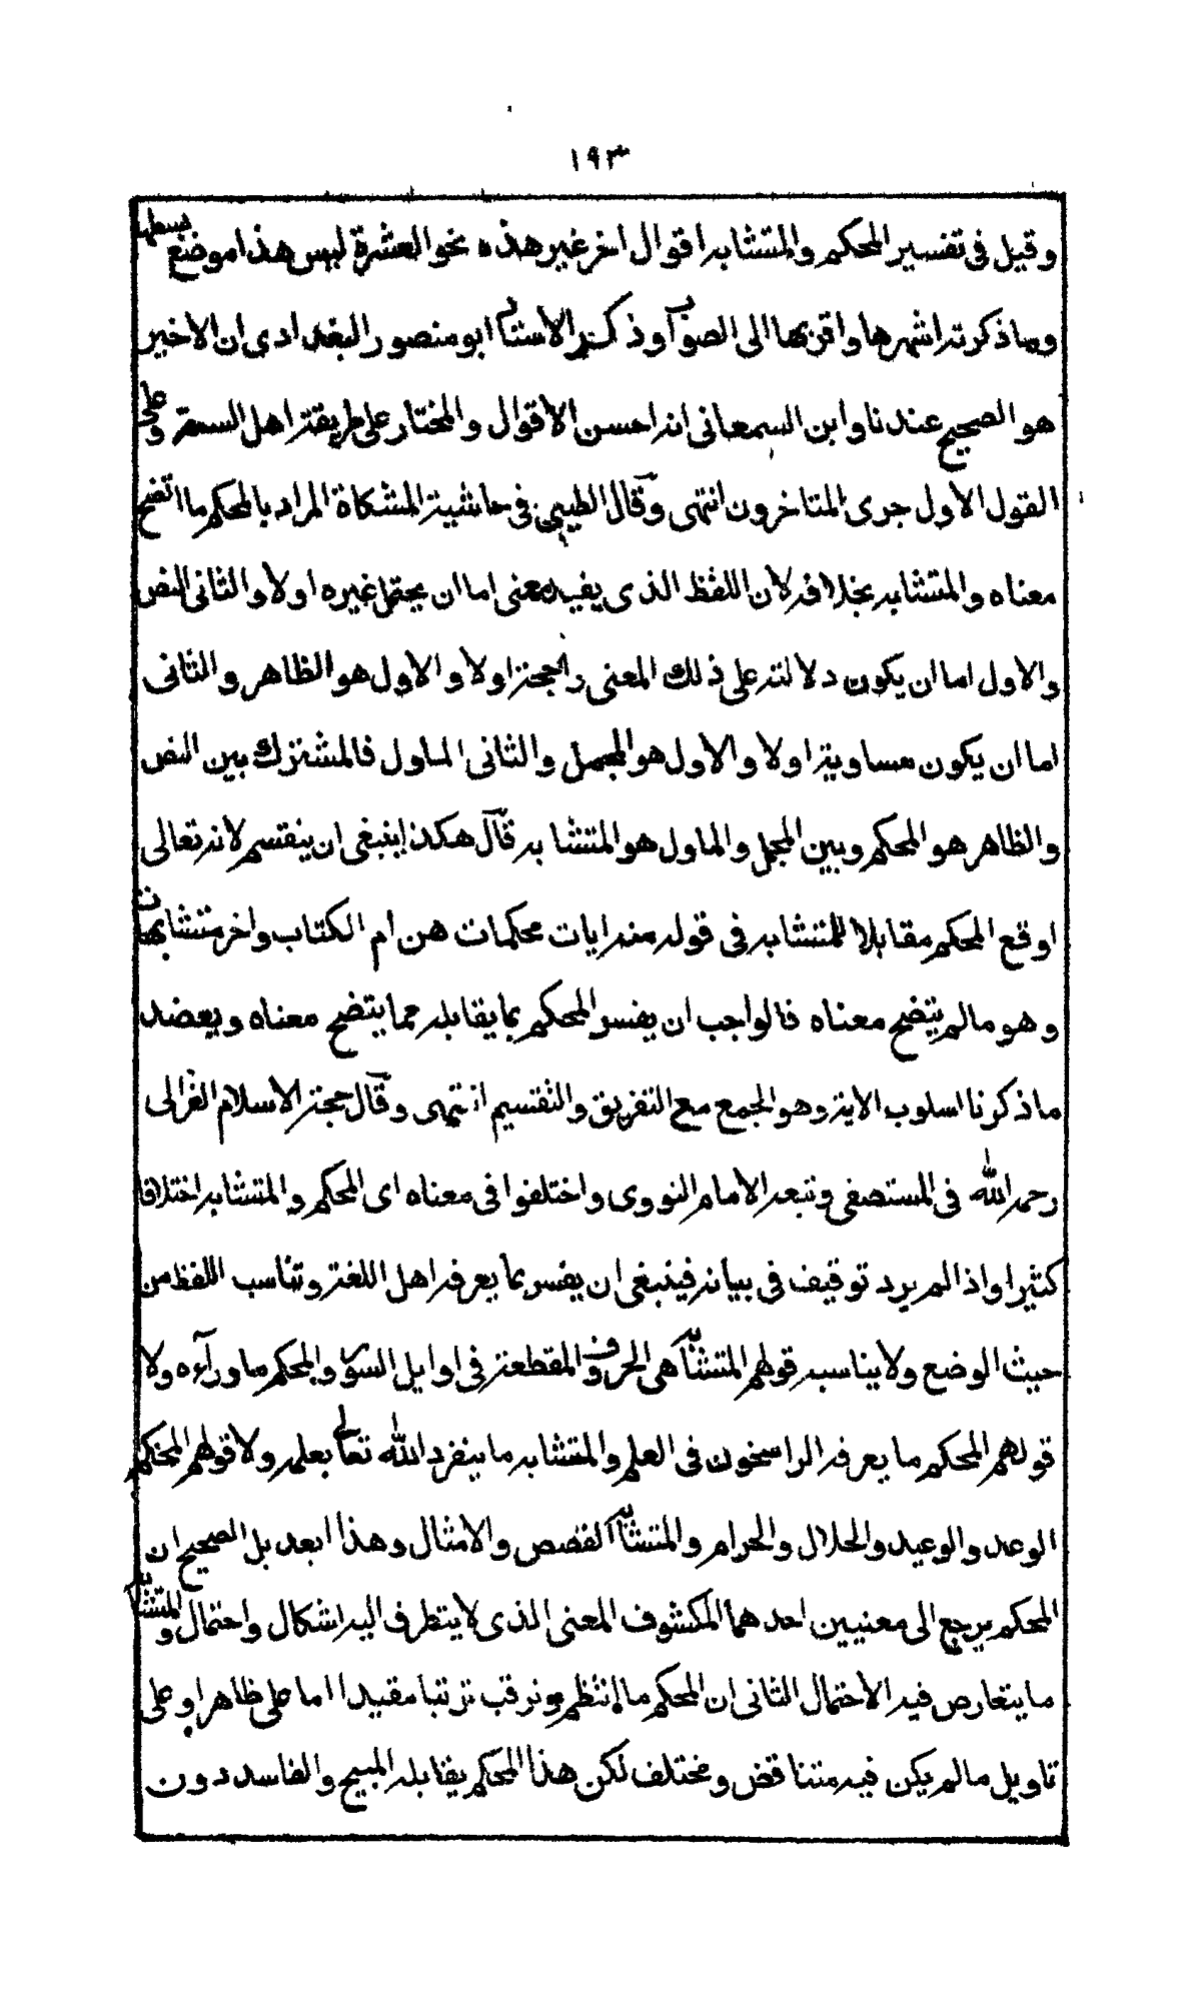 ١٩٣
وقيل في تفسير المحكم والمتشابه اقوال اخر غير هذه نحو العشرة ليس هذا موضع بسطها
وما ذكرته اشهرها واقربها الى الصواب وذكر الاستاذ ابو منصور البغدادى ان الاخير
هو الصحيح عندنا وابن السمعانى انه احسن الاقوال والمختار على طريقة اهل السنة وعلى
القول الاول جرى المتاخرون انتهى وقال الطيبى فى حاشية المشكاة المراد بالمحكم ما اتضح
معناه والمتشابه بخلافه لان اللفظ الذى يفيد معنى اما ان يحتمل غيره او لا والثانى النص
والاول اما ان يكون دلالته على ذلك المعنى راجحة او لا والاول هو الظاهر والثانى
اما ان يكون مساوية او لا والاول هو المجمل والثانى الماول فالمشترك بين النص
والظاهر هو المحكم وبين المجمل والماول هو المتشابه قال هكذا ينبغى ان ينقسم لانه تعالى
اوقع المحكم مقابلا للمتشابه فى قوله منه ايات محكمات هن أم الكتاب واخر متشابهات
وهو مالم يتضح معناه فالواجب ان يفسر المحكم بما يقابله مما يتضح معناه ويعضد
ما ذكرنا اسلوب الاية وهو الجمع مع التفريق والتقسيم انتهى وقال حجة الاسلام الغزالى
رحمه الله فى المستصفى وتبعه الامام النووى واختلفوا فى معناه اى المحكم والمتشابه اختلافا
كثيرا واذا لم يرد توقيف فى بيانه فينبغى ان يفسر بما يعرفه اهل اللغة وتناسب اللفظ من
حيث الوضع ولا يناسبه قولهم المتشابه هى الحروف المقطعة فى اوايل السور والمحكم ما ورآءه ولا
قولهم المحكم ما يعرفه الراسخون فى العلم والمتشابه ما ينفرد الله تعالى بعلمه ولا قولهم المحكم
الوعد والوعيد والحلال والحرام والمتشابه القصص والامثال وهذا ابعد بل الصحيح ان
المحكم يرجع الى معنيين احدهما المكشوف المعنى الذى لا يتطرف اليه اشكال واحتمال والمتشابه
ما يتعارص فيه الاحتمال الثانى ان المحكم ما انتظم ترتبا مقيدا اما على ظاهر او على
تاويل مالم يكن فيه متناقض ومختلف لكن هذا المحكم يقابله المبيح والفاسد دون